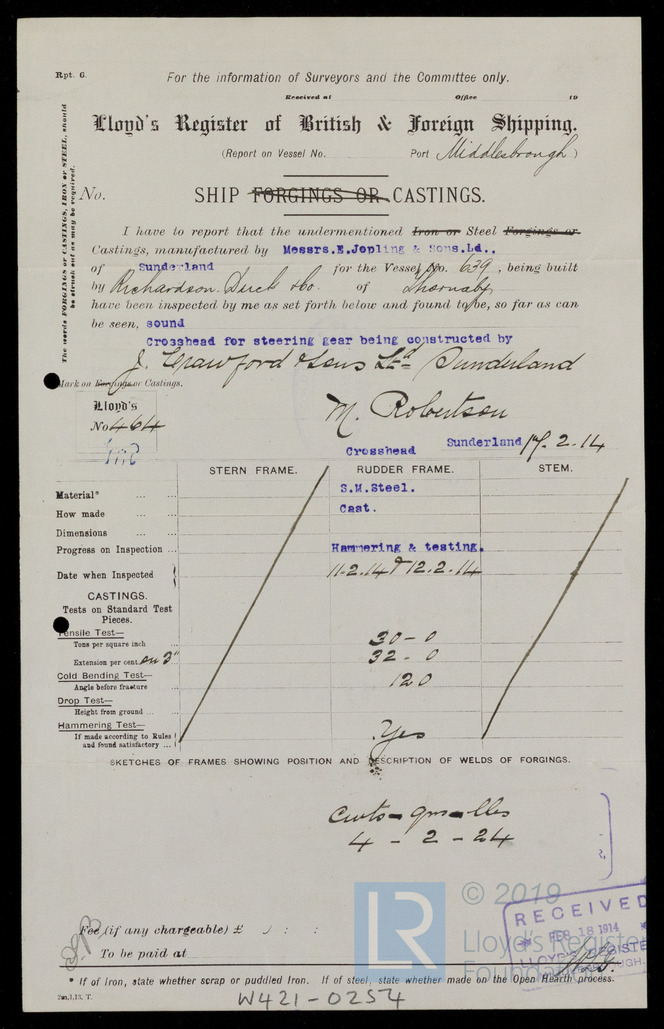 Rpt. 6.
For the information of Surveyors and the Committee only.
Received at Office 19
Lloyd's Register of British & Foreign Shipping.
(Report on Vessel No. Port Middlesbrough)
The words FORGINGS or CASTINGS, IRON or STEEL, should be struck out as may be required.
No.
SHIP FORGINGS OR CASTINGS.
I have to report that the undermentioned Iron or Steel Forgings or
Castings, manufactured by Messrs.E.Jopling & Sons.Ld..
of Sunderland for the Vessel No. 639, being built
by Richardson. Duck &Co. of Thornaby
have been inspected by me as set forth below and found to be, so far as can
be seen, sound
Crosshead for steering gear being constructed by
J. Crawford & Sons Ltd Sunderland
Mark on Forgings or Castings.
Lloyd's
No 464
M. Robertson
Sunderland 17. 2. 14
Crosshead
STERN FRAME. RUDDER FRAME. STEM.
Material* ... ... S.M.Steel.
How made ... ... Cast.
Dimensions ... ...
Progress on Inspection ... Hammering & testing.
Date when Inspected 11.2.14 & 12.2.14
CASTINGS.
Tests on Standard Test
Pieces.
Tensile Test—
Tons per square inch 30-0
Extension per cent. on 3" 32-0
Cold Bending Test—
Angle before fracture ... 120
Drop Test—
Height from ground ... ...
Hammering Test—
If made according to Rules
and found satisfactory ... Yes
SKETCHES OF FRAMES SHOWING POSITION AND DESCRIPTION OF WELDS OF FORGINGS.
Cwts - qrs - lbs
4 - 2 - 24
Fee (if any chargeable) £ : :
To be paid at
LR
© 2019
Lloyd's Register
Foundation
RECEIVED
FEB 18 1914
LLOYD'S REGISTE
* If of Iron, state whether scrap or puddled Iron. If of steel, state whether made on the Open Hearth process.
2m,1,13. T.
W421-0254